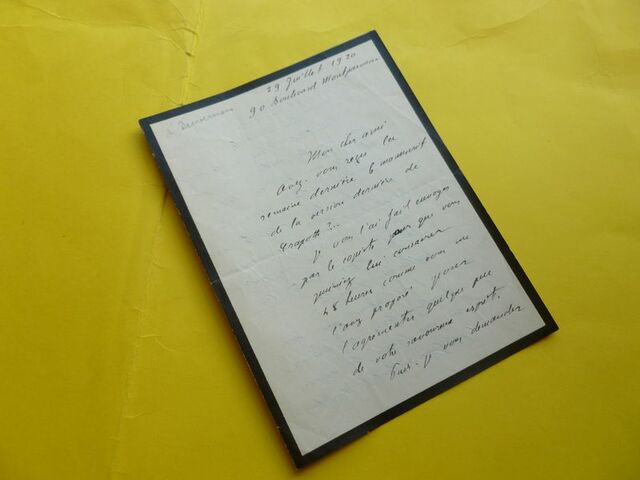 29 Juillet 1920
90 boulevard Montparnasse
Mon cher ami
Avez-vous reçu la
semaine dernière le manuscrit
de la version dernière de
?...
Je vous l'ai fait envoyer
par le copiste pour que vous
puissiez lui consacrer
48 heures comme vous me
l'avez proposé pour
l'agrémenter quelque peu
de votre savoureux esprit.
Puis-je vous demander